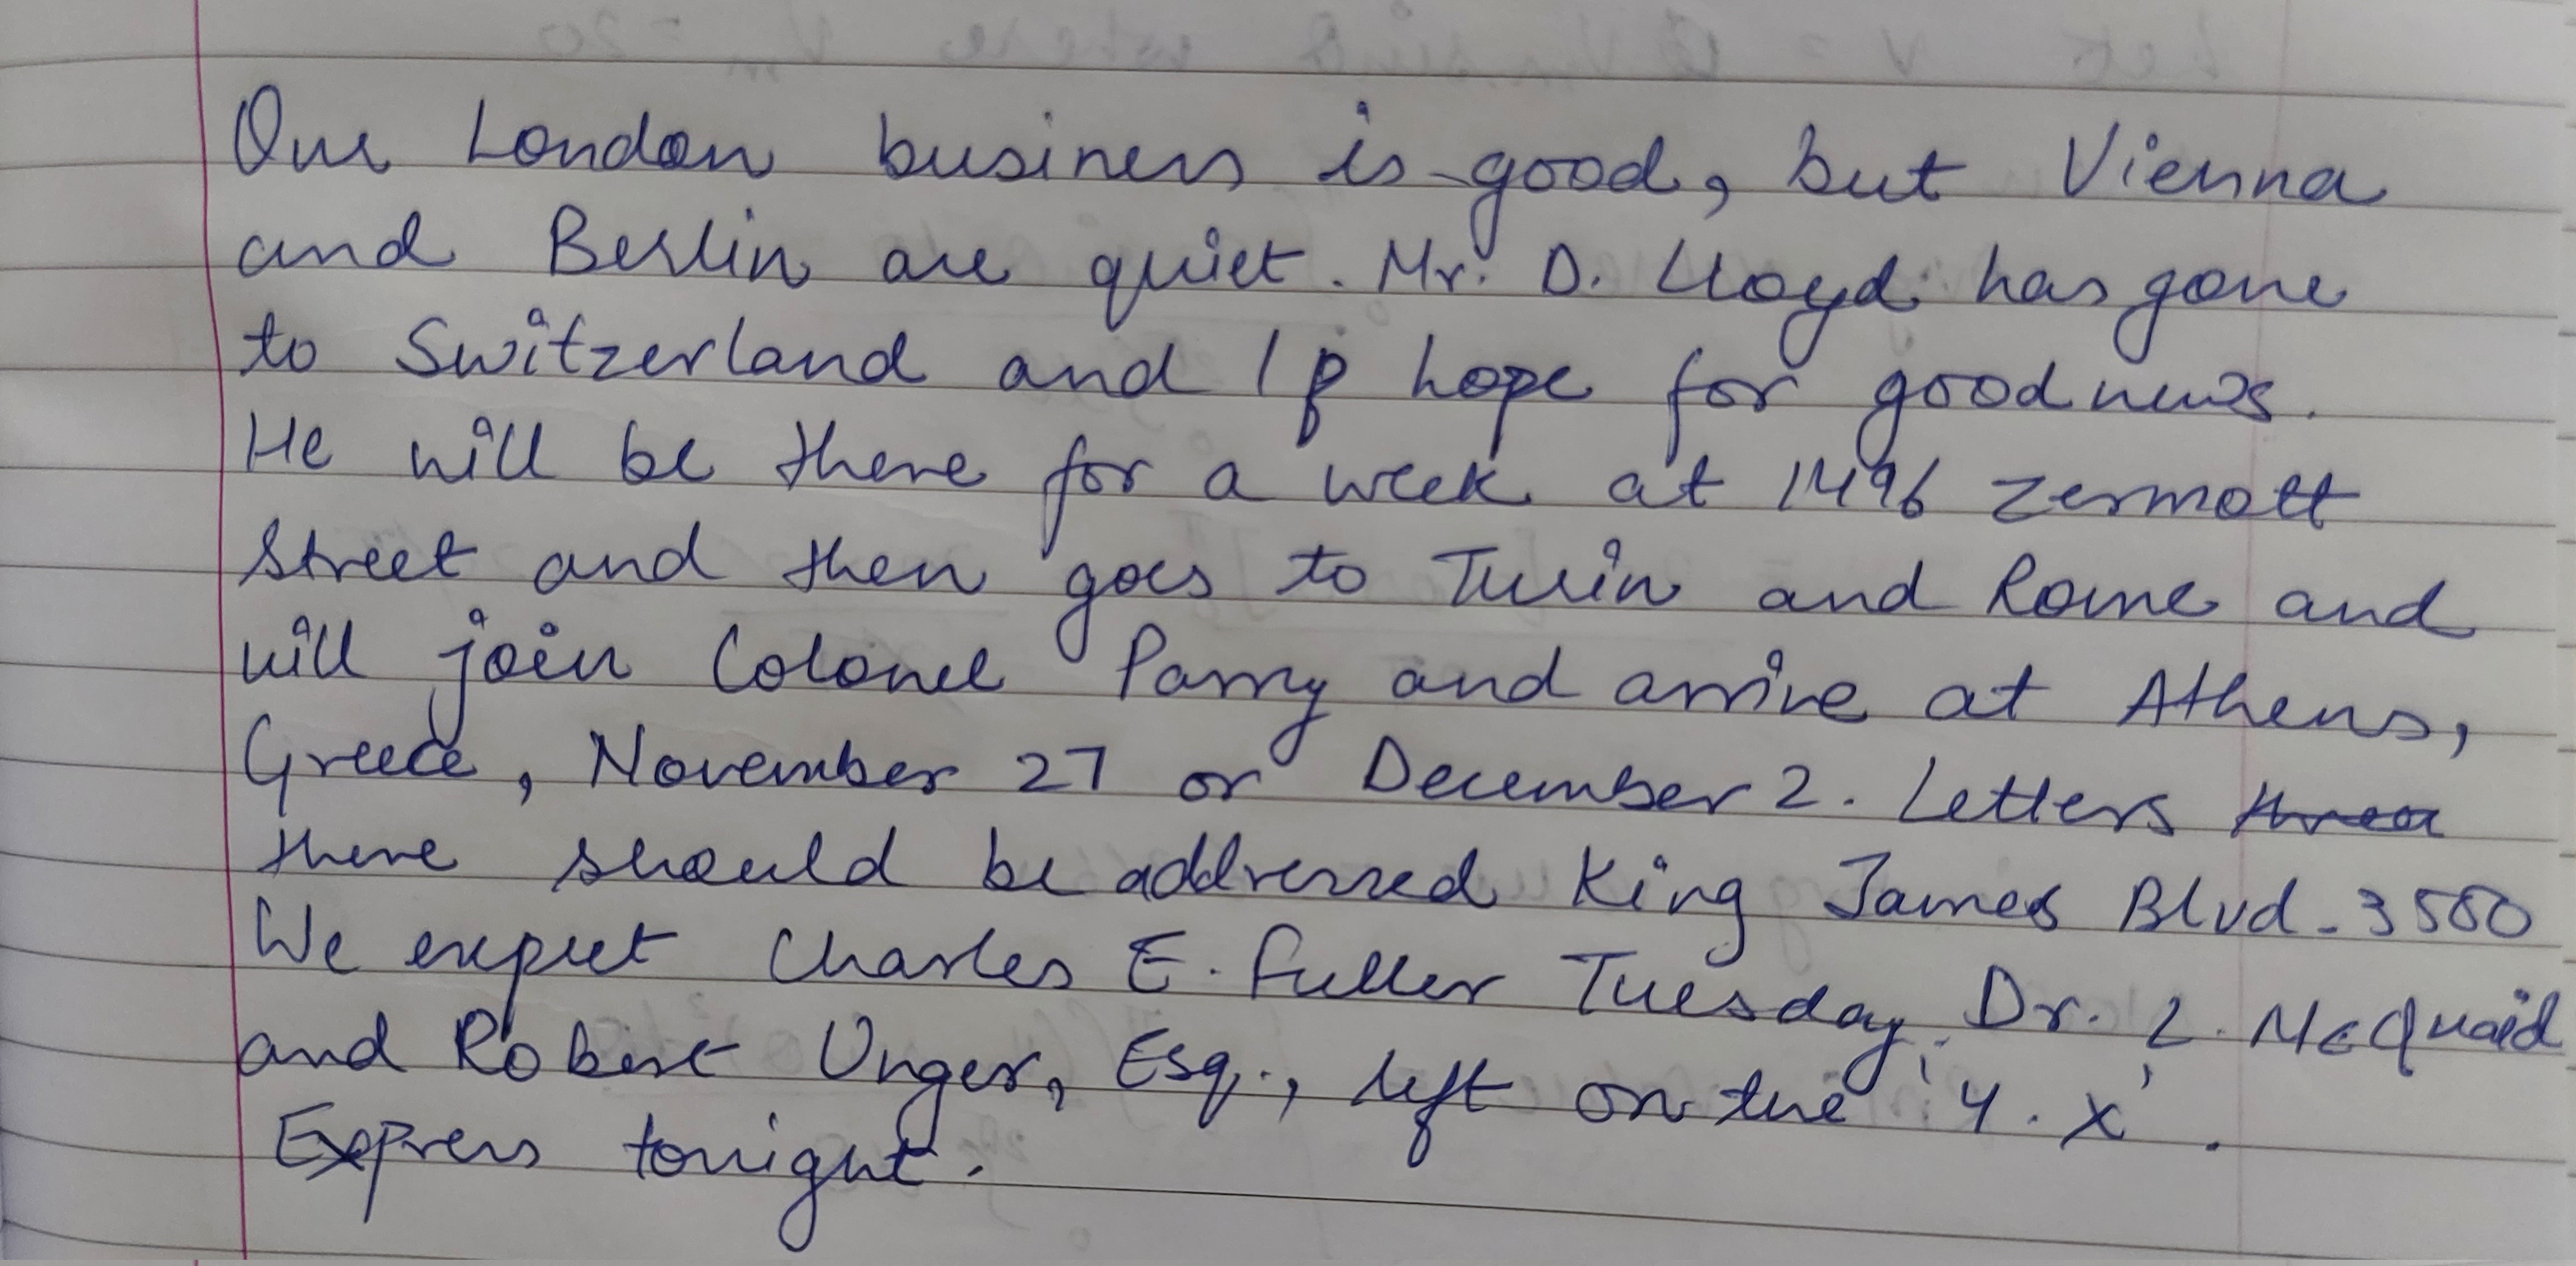 Our London business is good, but Vienna
and Berlin are quiet. Mr. D. Lloyd has gone
to Switzerland and I hope for good news.
He will be there for a week at 1496 Zermott
Street and then goes to Turin and Rome and
will join Colonel Parry and arrive at Athens,
Greece, November 27 or December 2. Letters
there should be addressed King James Blvd. 3580
We expect Charles E. Fuller Tuesday. Dr. L. McQuaid
and Robert Unger, Esq., left on the 'Y. X'.
Express tonight.